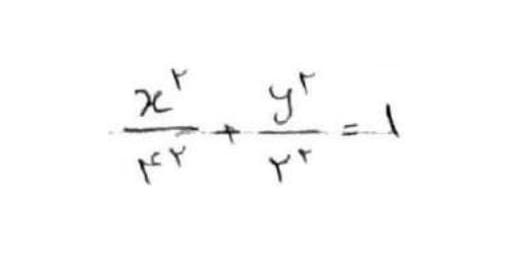 x^۲/۴^۲ + y^۲/۲^۲ = ۱